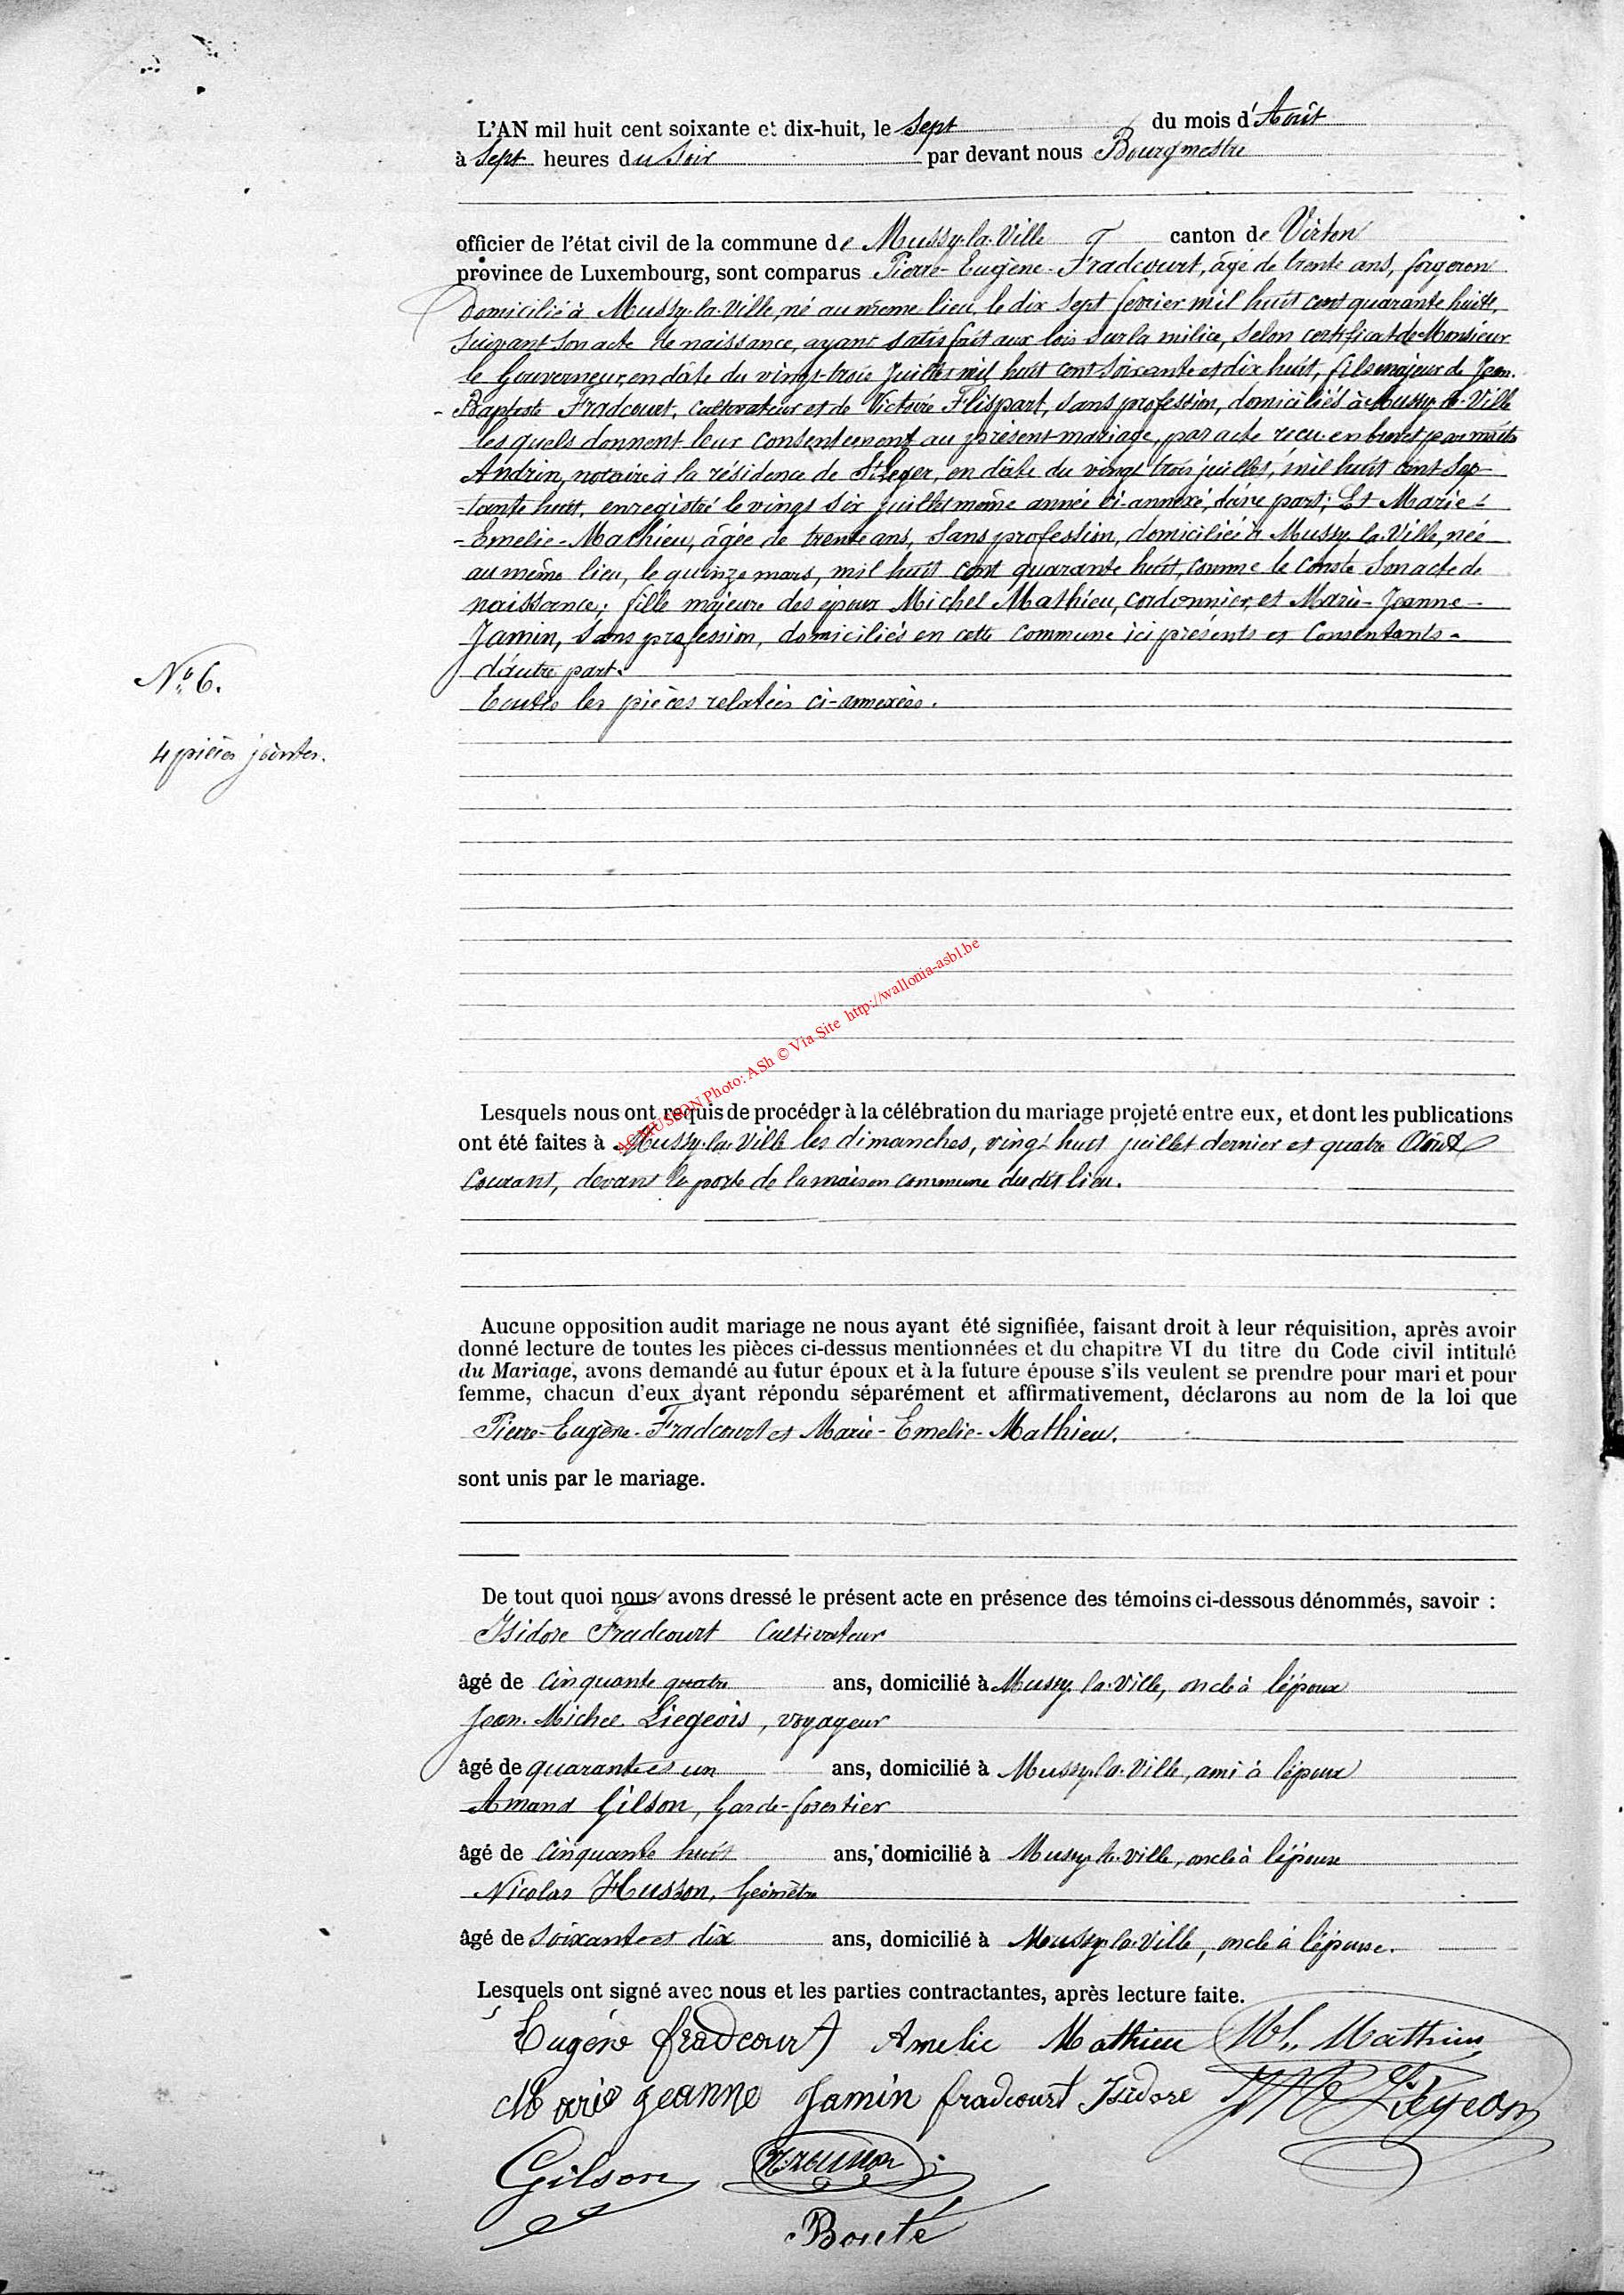 L'AN mil huit cent soixante et dix-huit, le Sept du mois d'Août
à Sept heures du Soir par devant nous Bourgmestre
officier de l'état civil de la commune de Mussy-la-Ville canton de Virton
province de Luxembourg, sont comparus Pierre-Eugène-Fradcourt, âgé de trente ans, forgeron
Domicilié à Mussy-la-Ville, né au même lieu, le dix sept fevrier mil huit cent quarante huit,
Suivant son acte de naissance, ayant satisfait aux lois sur la milice, selon certificat de Monsieur
le Gouverneur, en date du vingt-trois Juillet mil huit cent soixante et dix huit, fils majeur de Jean-
-Baptiste Fradcourt, cultivateur et de Victoire Flispart, sans profession, domiciliés à Mussy-la-Ville
lesquels donnent leur consentement au présent mariage, par acte reçu en brevet par
Andrin, notaire à la résidence de St Leger, en date du vingt trois juillet, mil huit cent sep-
-tante huit, enregistré le vingt six juillet même année ci-annexé, d'une part; Et Marie-
-Emelie-Mathieu, âgée de trente ans, sans profession, domiciliée à Mussy-la-Ville, née
au même lieu, le quinze mars, mil huit cent quarante huit, comme le Conste son acte de
naissance; fille majeure des époux Michel Mathieu, cordonnier, et Marie-Jeanne-
Jamin, sans profession, domiciliés en cette commune ici présents et Consentants-
d'autre part.
No 6.
Toutes les pièces relatées ci-annexées.
4 pièces jointes.
ACMUSSON Photo: ASh © Via Site http://wallonia-asbl.be
Lesquels nous ont requis de procéder à la célébration du mariage projeté entre eux, et dont les publications
ont été faites à Mussy-la-Ville les dimanches, vingt huit juillet dernier et quatre Août
Courant, devant la porte de la maison commune du dit lieu.
Aucune opposition audit mariage ne nous ayant été signifiée, faisant droit à leur réquisition, après avoir
donné lecture de toutes les pièces ci-dessus mentionnées et du chapitre VI du titre du Code civil intitulé
du Mariage, avons demandé au futur époux et à la future épouse s'ils veulent se prendre pour mari et pour
femme, chacun d'eux ayant répondu séparément et affirmativement, déclarons au nom de la loi que
Pierre-Eugène-Fradcourt et Marie-Emelie-Mathieu.
sont unis par le mariage.
De tout quoi nous avons dressé le présent acte en présence des témoins ci-dessous dénommés, savoir :
Isidore Fradcourt Cultivateur
âgé de Cinquante quatre ans, domicilié à Mussy-la-Ville, oncle à l'époux
Jean-Michel Liegeois, voyageur
âgé de quarante et un ans, domicilié à Mussy-la-Ville, ami à l'époux
Amand Gilson, Garde-forestier
âgé de Cinquante huit ans, domicilié à Mussy-la-Ville, oncle à l'époux
Nicolas Husson, Géomètre
âgé de Soixante et dix ans, domicilié à Mussy-la-Ville, oncle à l'épouse.
Lesquels ont signé avec nous et les parties contractantes, après lecture faite.
Eugéne fradcourt Amelie Mathieu Mh. Mathieu
Marie jeanne Jamin fradcourt Isidore JM Liegeois
Gilson N. Husson
Bouté